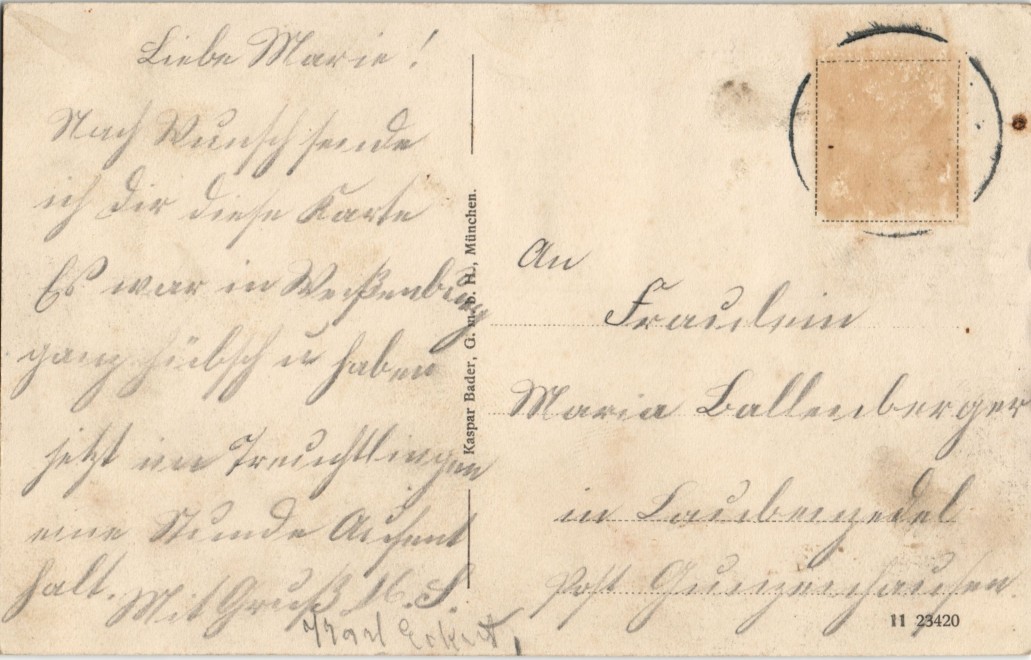 Liebe Marie!
Nach Wunsch sende
ich dir diese Karte
Es war in Weißenburg
ganz hübsch u haben
jetzt in Treuchtlingen
eine Stunde Aufent
halt. Mit Gruß
Karl
Kaspar Bader, G. m. b. H., München.
An
Fraulein
Maria Ballenberger
in Laubenzedel
Post Gunzenhausen.
11 23420